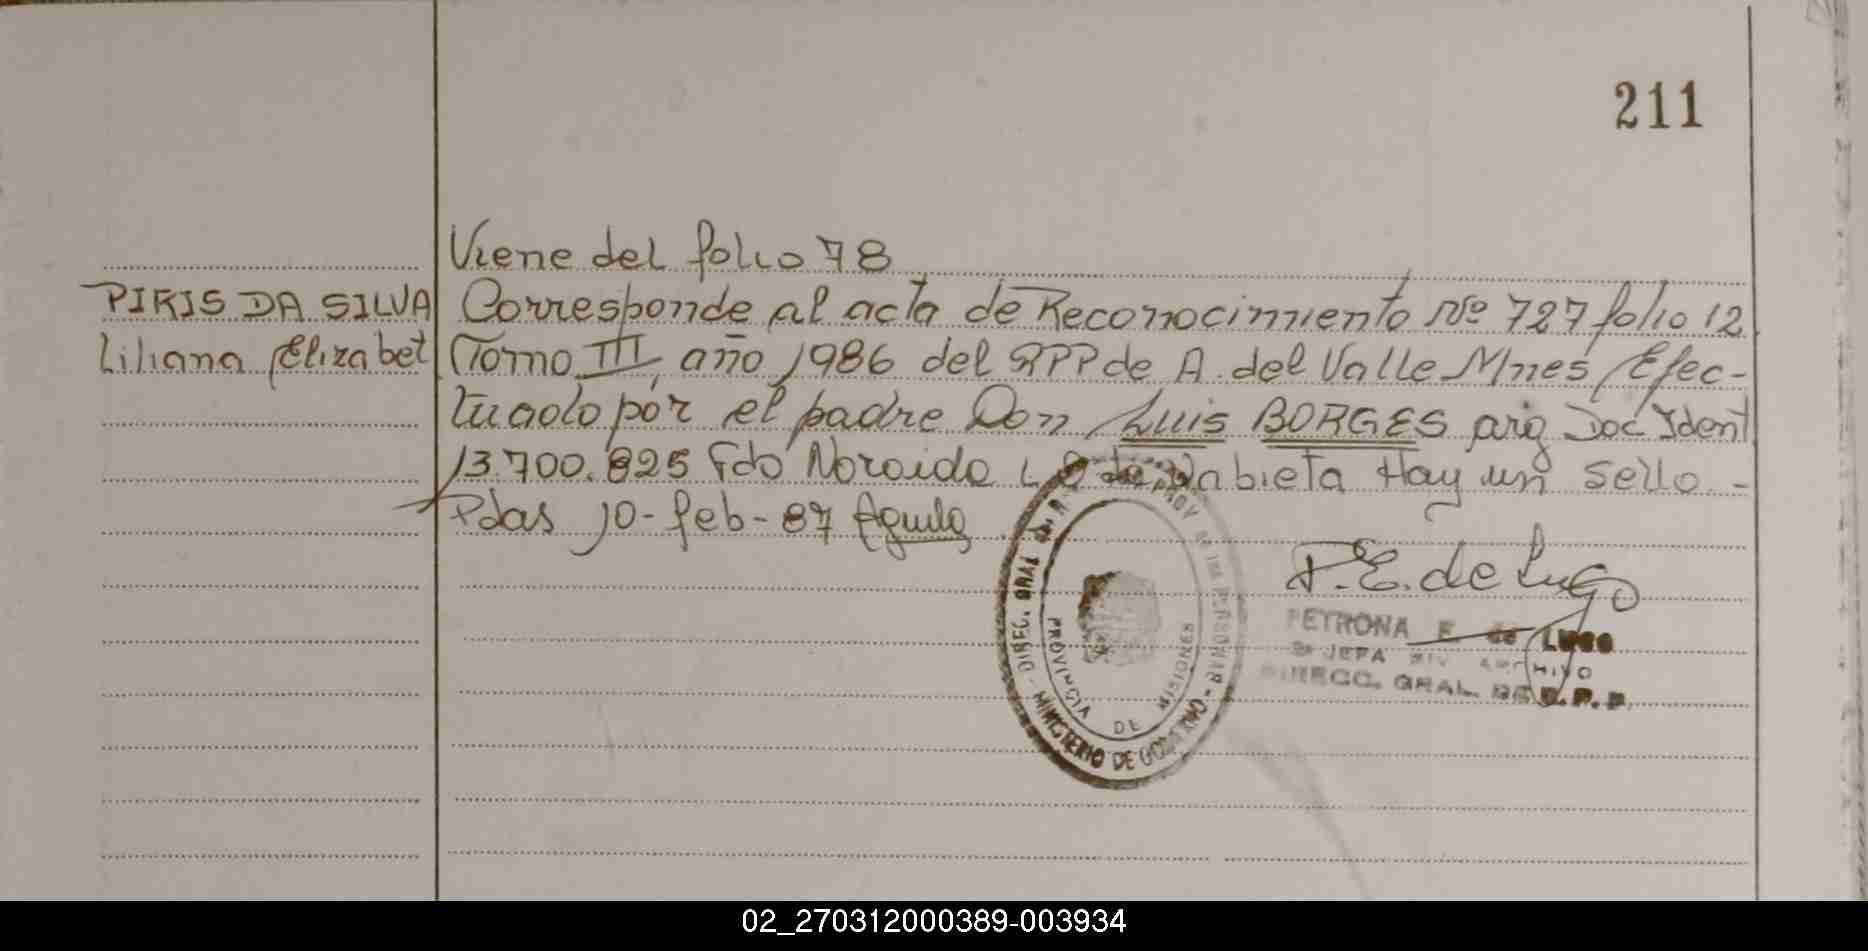 211
Viene del folio 78
PIRIS DA SILVA Corresponde al acta de Reconocimiento Nº 727 folio 12
Liliana Elizabet Tomo III, año 1986 del RPP de A. del Valle Mnes Efec-
tuado por el padre Don Luis BORGES arg Doc Ident
13.700.825 Fdo Noraida de Nabieta Hay un sello -
Pdas 10-feb-87 Aguila
P.E. de Lugo
PETRONA E. de LUGO
JEFA DIV ARCHIVO
DIRECC. GRAL. DE R.P.P.
DIREC. GRAL DE PROV DE LAS PERSONAS
MINISTERIO DE GOBIERNO
PROVINCIA DE MISIONES
02_270312000389-003934